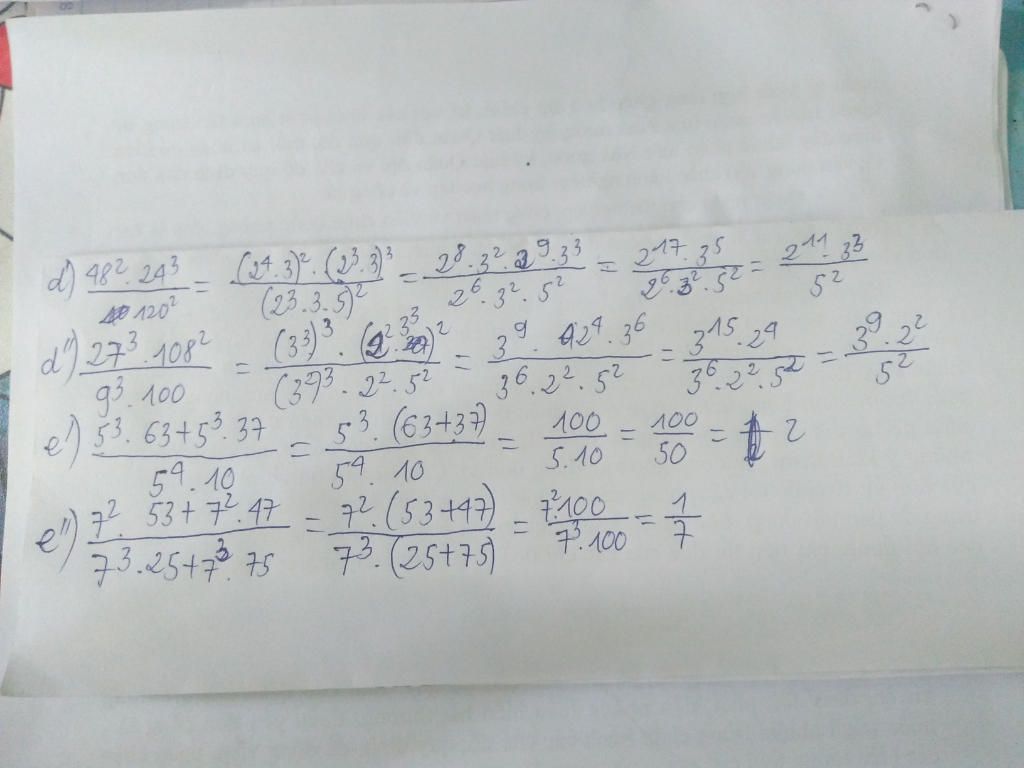 d') 48² · 24³ / 120² = (2⁴·3)² · (2³·3)³ / (2³·3·5)² = 2⁸·3²·2⁹·3³ / 2⁶·3²·5² = 2¹⁷·3⁵ / 2⁶·3²·5² = 2¹¹·3³ / 5²
d'') 27³·108² / 9³·100 = (3³)³ · (2²·3³)² / (3²)³·2²·5² = 3⁹·2⁴·3⁶ / 3⁶·2²·5² = 3¹⁵·2⁴ / 3⁶·2²·5² = 3⁹·2² / 5²
e') 5³·63+5³·37 / 5⁴·10 = 5³·(63+37) / 5⁴·10 = 100 / 5·10 = 100 / 50 = 2
e'') 7²·53+7²·47 / 7³·25+7³·75 = 7²·(53+47) / 7³·(25+75) = 7²·100 / 7³·100 = 1 / 7